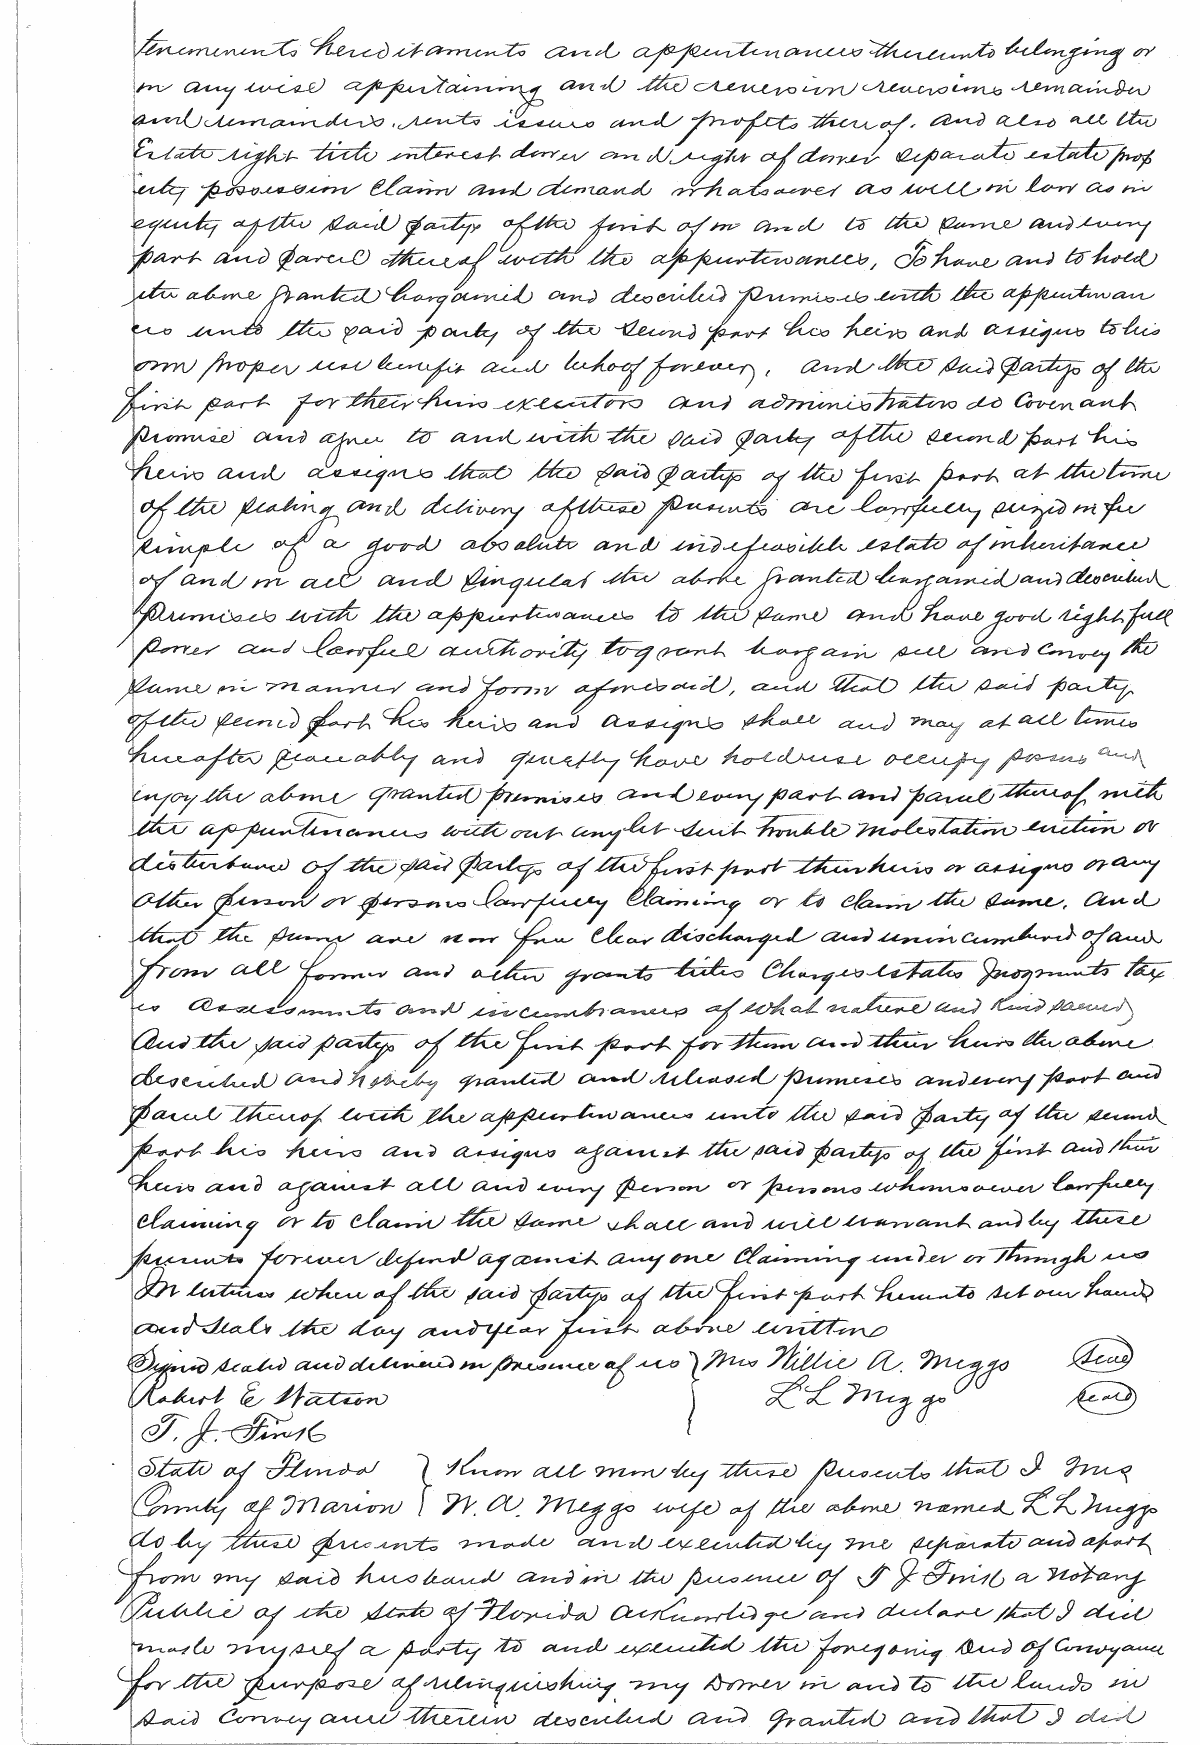 tenemenents hereditaments and appurtenances thereunto belonging or
in any wise appertaining and the reversion reversions remainder
and remainders. rents issues and profits thereof. And also all the
Estate right title interest dower and right of dower separate estate prop
erty possession Claim and demand whatsoever as well in law as in
equity of the said partys of the first of in and to the same and every
part and parcel thereof with the appurtenances, To have and to hold
the above granted bargained and described premises with the appurtenan
ces unto the said party of the Second part his heirs and assigns to his
own proper use benefit and behoof forever, and the said partys of the
first part for their heirs executors and administrators do Covenant
promise and agree to and with the said party of the second part his
heirs and assigns that the said partys of the first part at the time
of the sealing and delivery of these presents are lawfully seized in fee
simple of a good absolute and indefeasible estate of inheritance
of and in all and singular the above granted bargained and described
premises with the appurtenances to the same and have good right full
power and lawful authority to grant bargain sell and convey the
same in manner and form aforesaid, and that the said party
of the second part his heirs and assigns shall and may at all times
hereafter peaceably and quietly have hold use occupy possess and
enjoy the above granted premises and every part and parcel thereof with
the appurtenances with out any let suit trouble molestation eviction or
disturbance of the said partys of the first part their heirs or assigns or any
other person or persons lawfully claiming or to claim the same. And
that the same are now free clear discharged and unincumbered of and
from all former and other grants titles Charges estates Judgments tax
es Assessments and incumbrances of what nature and kind soever
And the said partys of the first part for them and their heirs the above
described and hereby granted and released premises and every part and
parcel thereof with the appurtenances unto the said party of the second
part his heirs and assigns against the said partys of the first and their
heirs and against all and every person or persons whomsoever lawfully
claiming or to claim the same shall and will warrant and by these
presents forever defend against any one Claiming under or through us
In witness where of the said partys of the first part hereunto set our hands
and seals the day and year first above written
Signed sealed and delivered in presence of us } Mrs Willie A. Meggs Seal
Robert E Watson L L Meggs Seal
T. J. Fink
State of Florida } Know all men by these presents that I Mrs
County of Marion } W. A. Meggs wife of the above named L L Meggs
do by these presents made and executed by me separate and apart
from my said husband and in the presence of T J Fink a Notary
Public of the State of Florida acknowledge and declare that I did
made myself a party to and executed the foregoing Deed of Conveyance
for the purpose of relinquishing my Dower in and to the lands in
said Conveyance therein described and granted and that I did